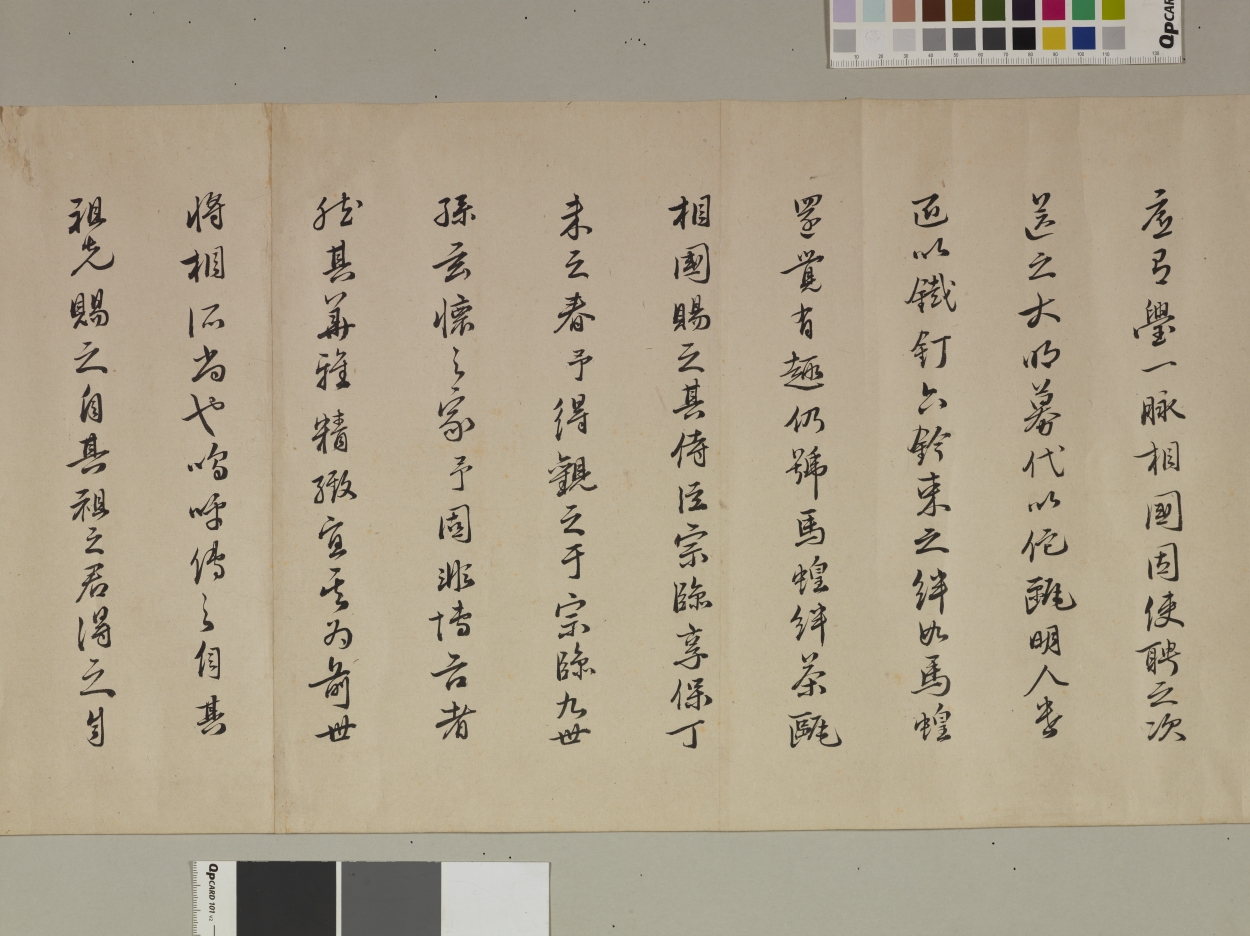 底有璺一脉相國因使聘之次
送之大明募代以佗甌明人遣
匠以鐵釘六鈐束之絆如馬蝗
還覺有趣仍號馬蝗絆茶甌
相國賜之其侍臣宗臨享保丁
未之春予得觀之于宗臨九世
孫玄懷之家予固非博古者
然其華雅精緻宜乎為前世
將相所尚也嗚呼傳之自其
祖先賜之自其祖之君得之自
QpCARD 101 v2